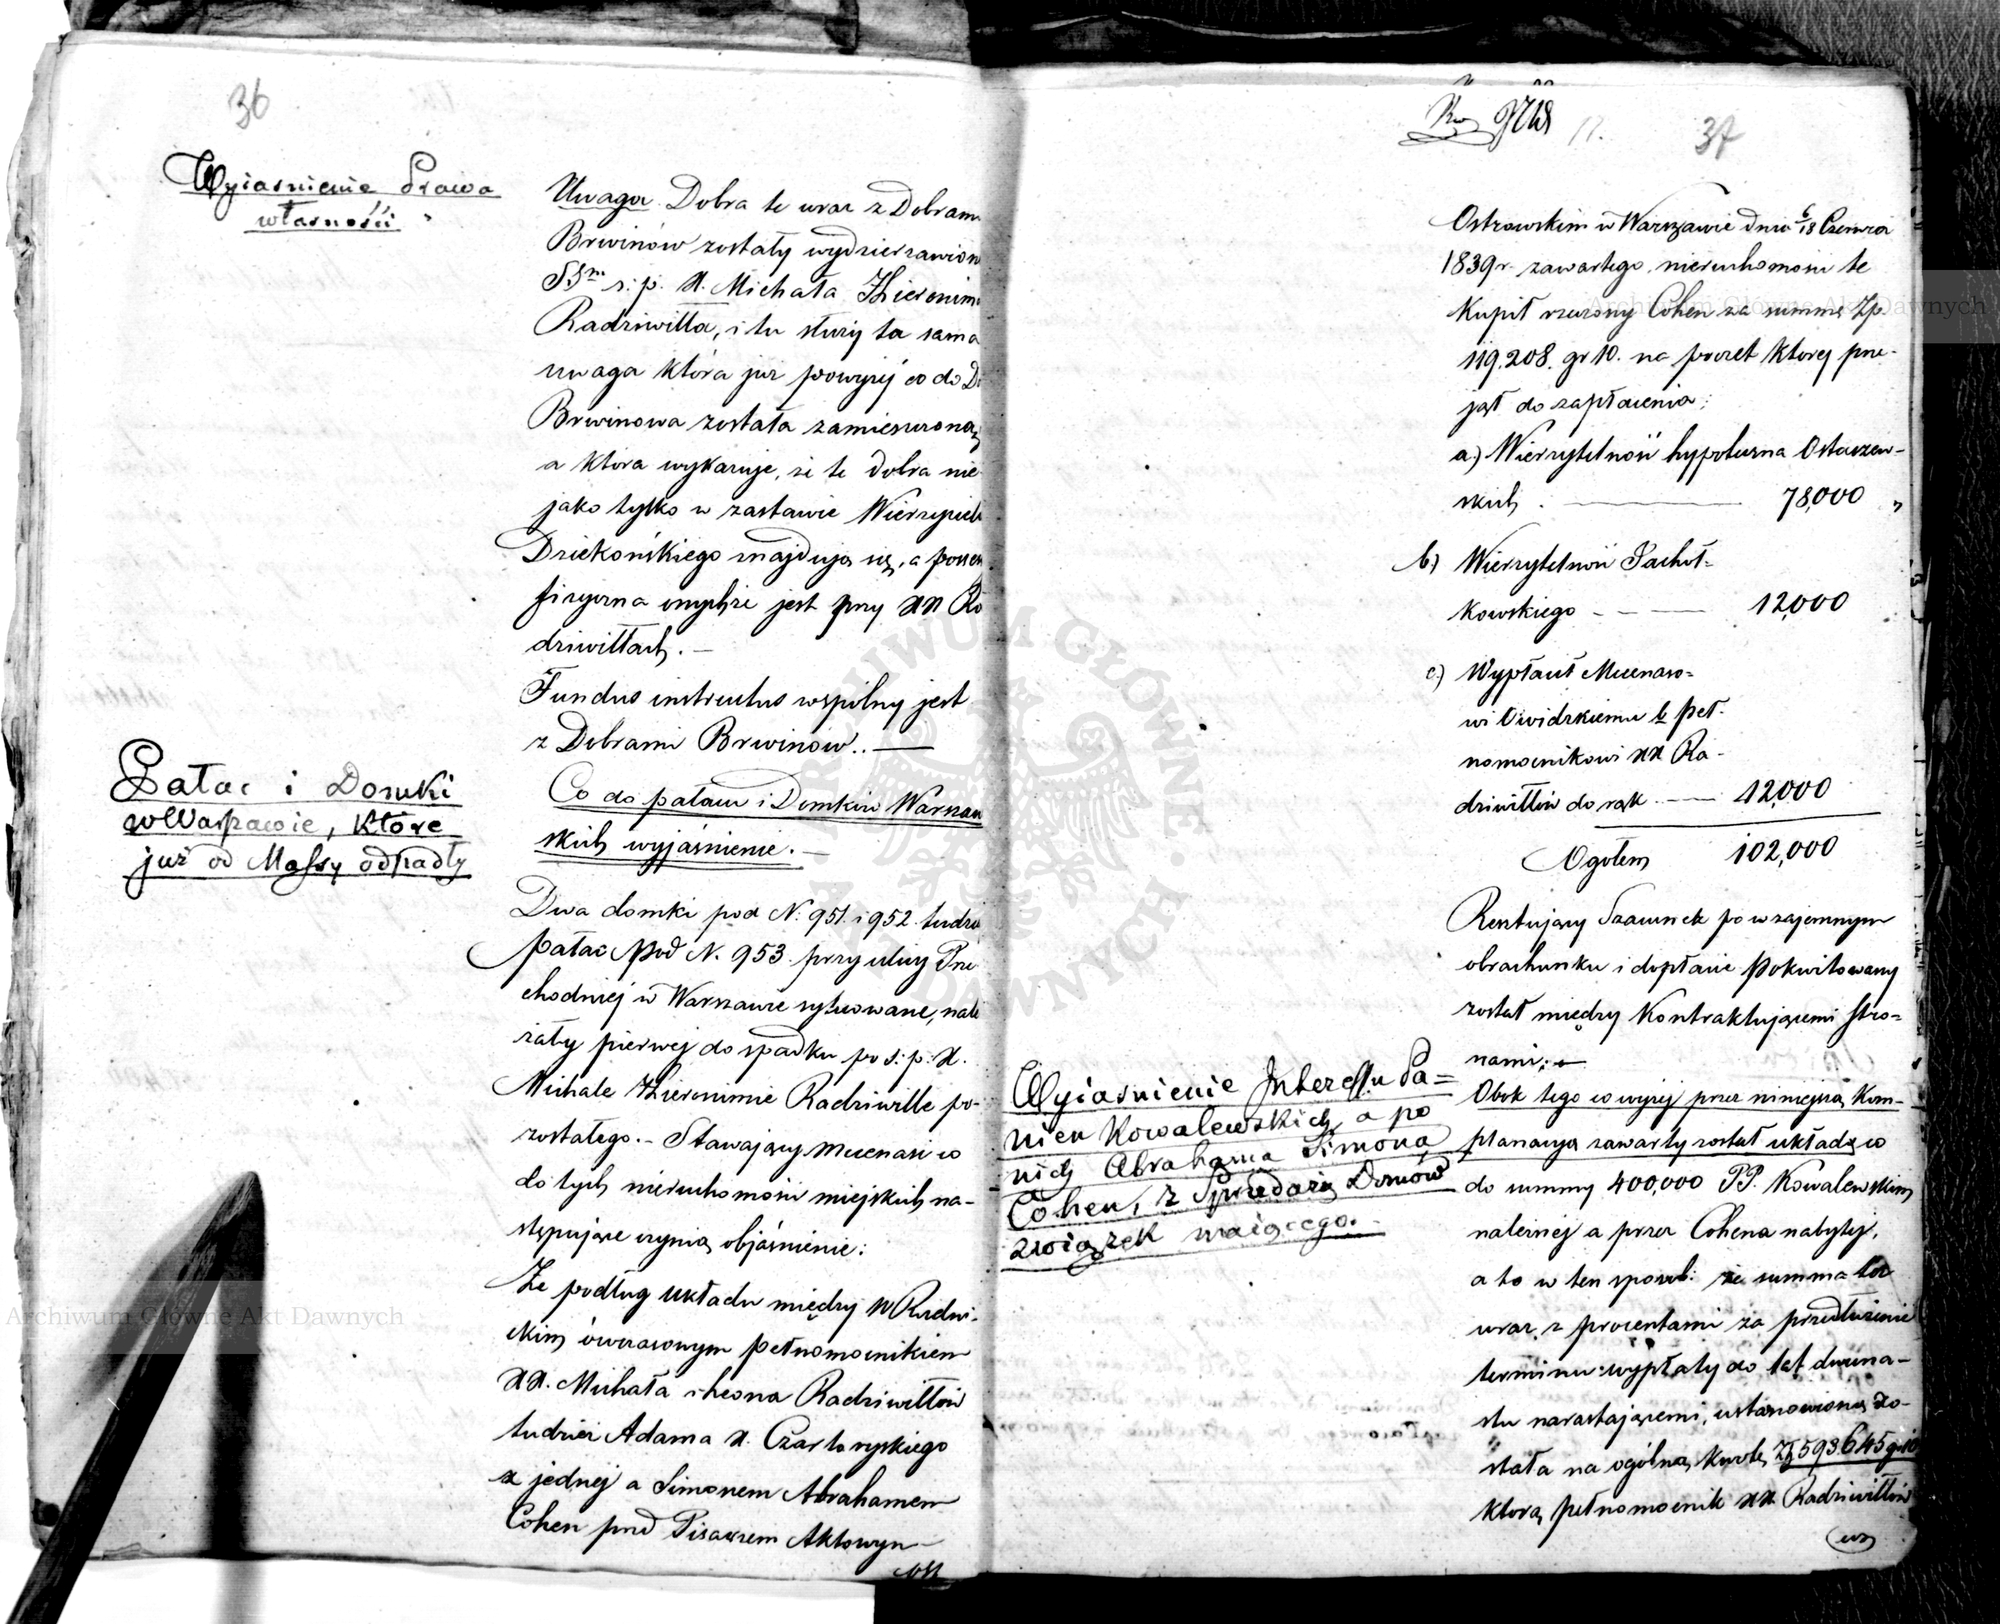 36
Wyiasnienie Prawa
własności
Uwaga. Dobra te wraz z Dobram
Brwinów zostały wydzierzawion
s: p. X. Michała Hieronim
Radziwiłła, i tu służy ta sama
uwaga która już powyżej co do
Brwinowa została zamieszczona,
a która wykazuje, że te dobra nie
jako tylko w zastawie Wierzyciela
Dziekońskiego znajdują się, a
fizyczna jest przy XX Ra
dziwiłłach. —
Fundus instructus wspólny jest
z Dobrami Brwinów. —
Pałac i Domki
w Warszawie, które
już od Massy odpadły
Co do pałacu i Domków Warszaw
skich wyjaśnienie. —
Dwa domki pod N: 951. i 952. tudzi
pałac pod N. 953. przy ulicy Prze
chodniej w Warszawie sytuowane, nale
żały pierwej do spadku po s: p: X.
Michale Hieronimie Radziwille po-
zostałego. - Stawający Mecenasi co
do tych nieruchomości miejskich na-
stępujące czynią objaśnienie:
Że podług układu między W
ówczasowym pełnomocnikiem
XX. Michała i Leona Radziwiłłów
tudzież Adama X. Czartoryskiego
z jednej a Simonem Abrahamem
Cohen przed Pisarzem Aktowym
37
Ostrowskim w Warszawie dnia 6/18 Czerwca
1839 r. zawartego, nieruchomości te
kupił rzeczony Cohen za summę Zp.
119.208. gr 10. na poczet której prze-
jął do zapłacenia:
a.) Wierzytelność hypoteczna Ostaszew-
skich . — 78,000 „
b.) Wierzytelność Suchoł-
kowskiego - - — 12,000
c.) Wypłacił Mecenaso-
wi b peł-
nomocnikowi XX Ra-
dziwiłłów do rąk — 12,000
Ogółem 102,000
Resztujący Szacunek po wzajemnym
obrachunku i dopłacie pokwitowany
został między Kontraktującemi Stro-
nami. —
Wyiasnienie Interessu Pa=
nien Kowalewskich, a po
nich Abrahama Simona
Cohen, z Sprzedażą Domów
związek maiącego.
Obok tego co wyżej przez niniejszą Kom-
planacyą zawarty został układ co
do summy 400,000 PP. Kowalewskim
należnej a przez Cohena nabytej,
a to w ten sposób: że summa ta
wraz z procentami za przedłużenie
terminu wypłaty do lat dwuna-
stu narastającemi, ustanowioną zo-
stała na ogólną kwotę Zł 593.645 gr 10
którą pełnomocnik XX. Radziwiłłów